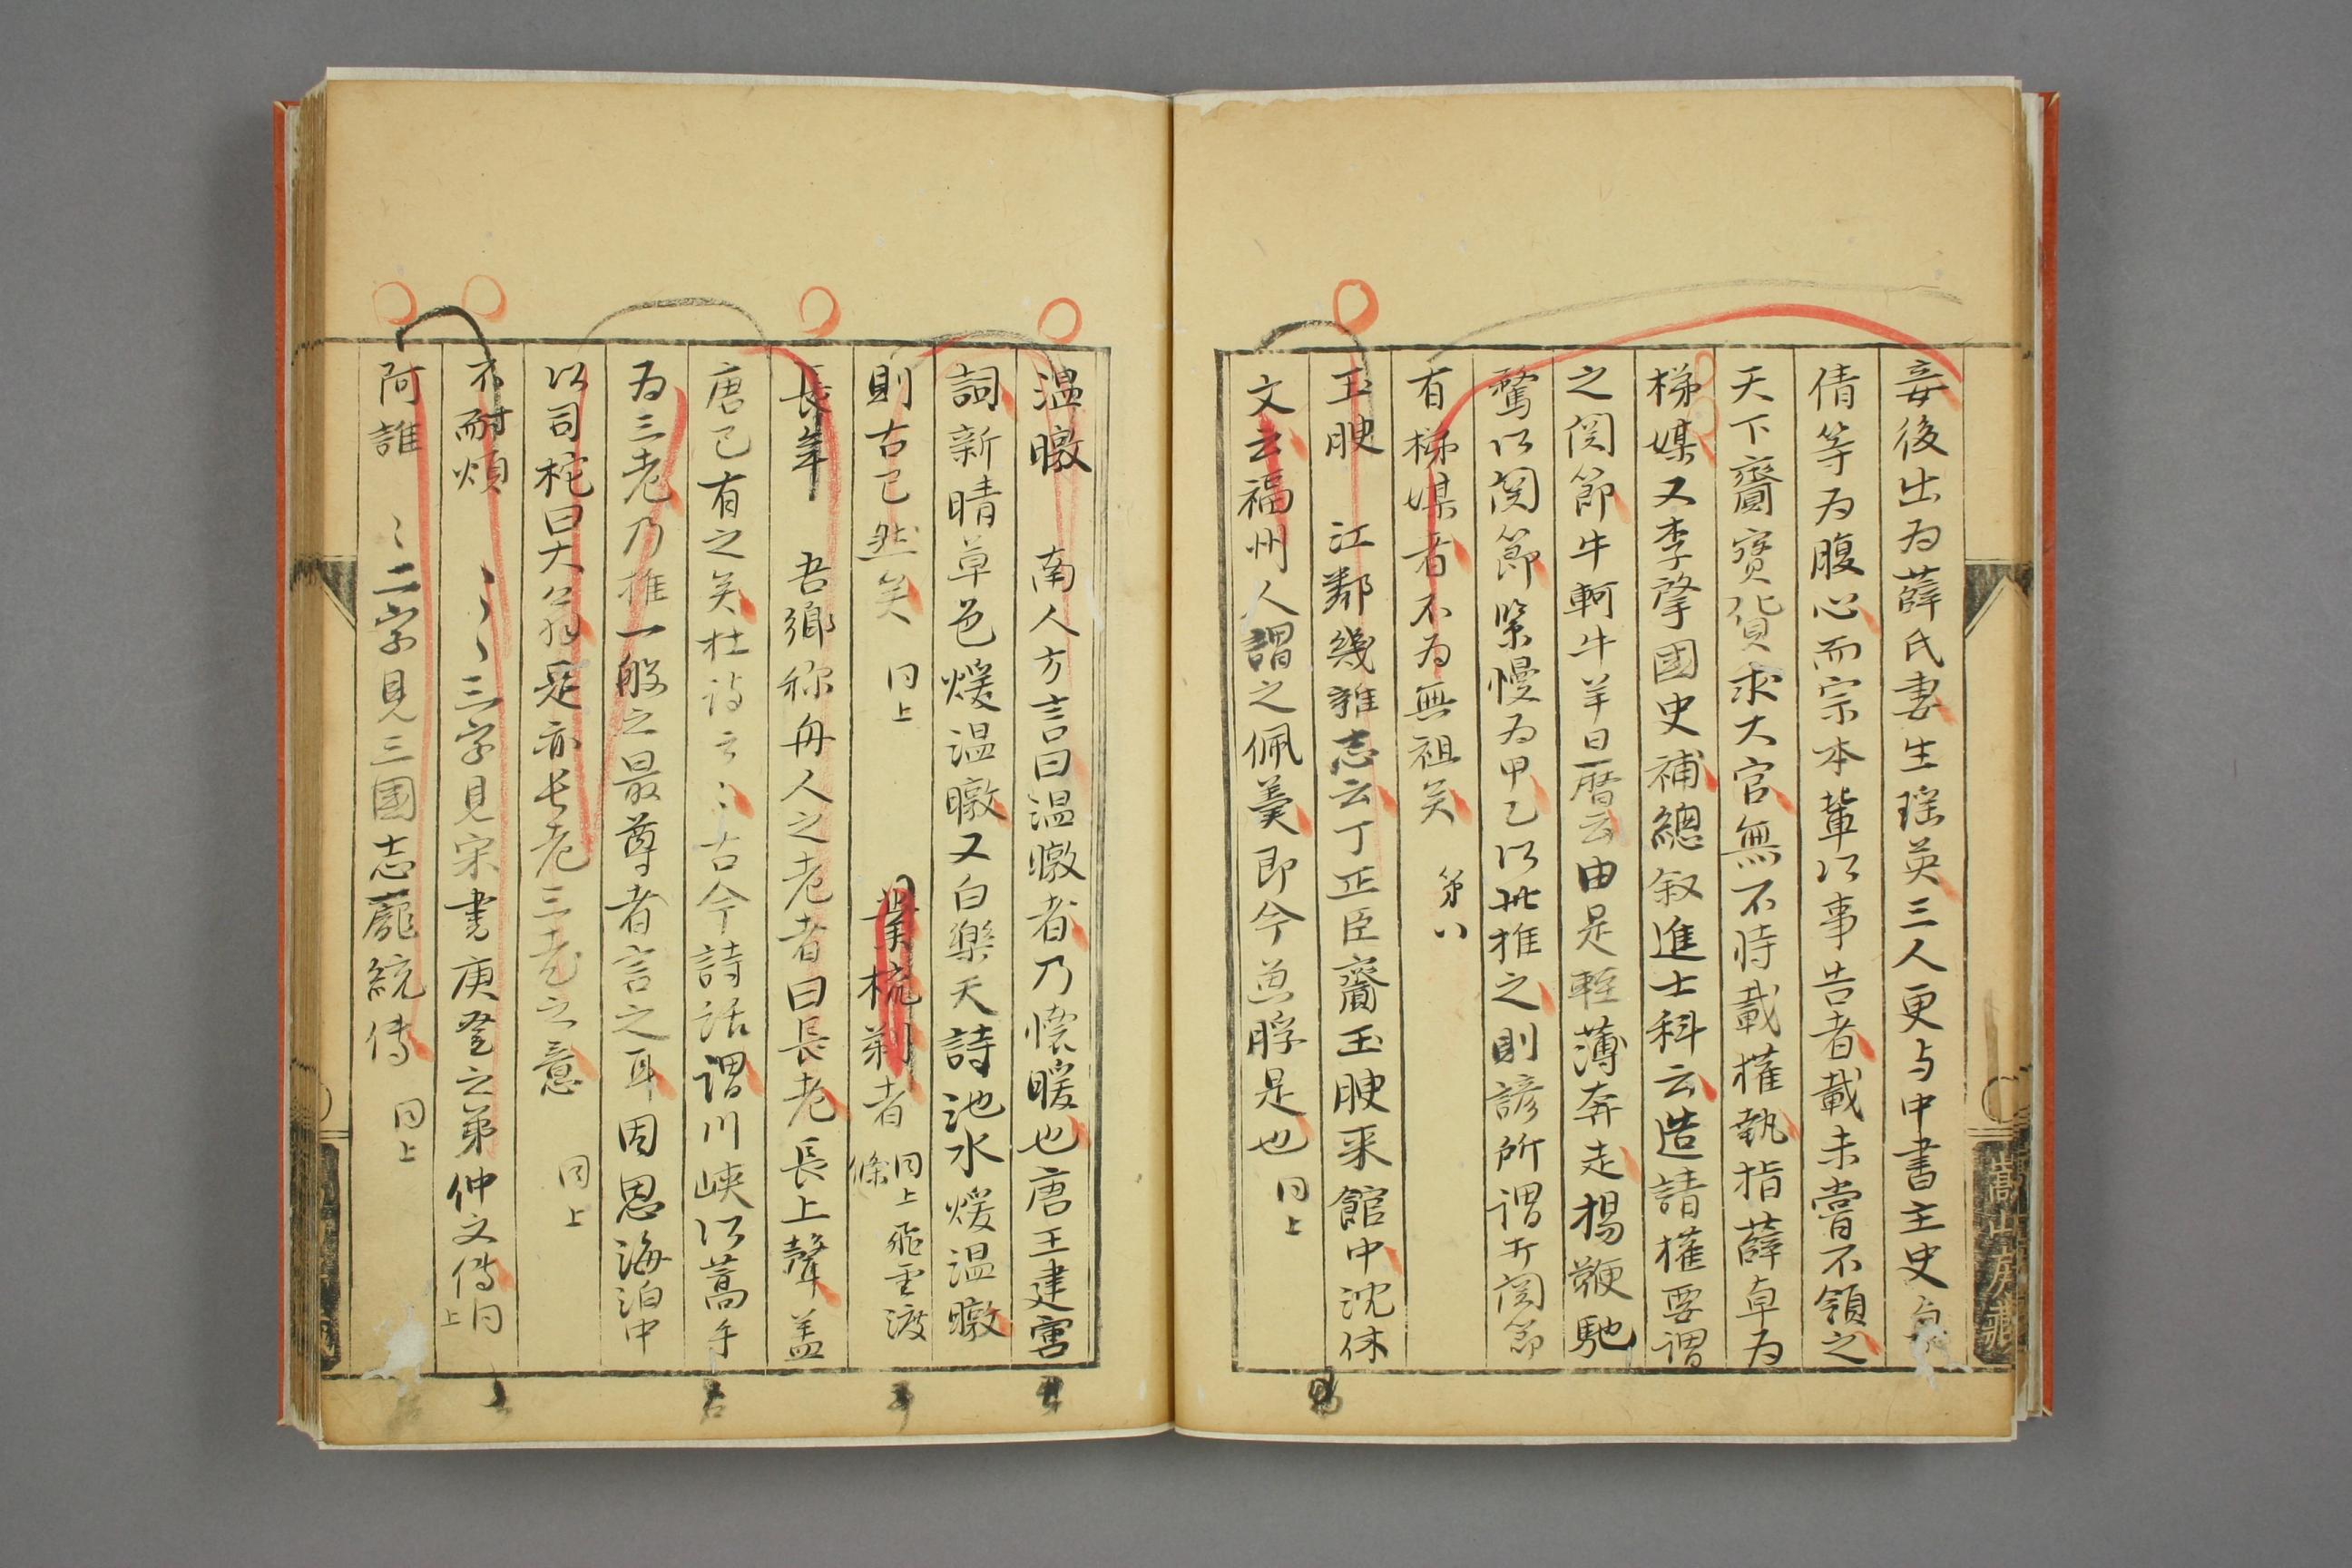 妾後出为薛氏妻生瑶英三人更与中書主史
倩等为腹心而宗本輩以事告者載未嘗不領之
天下齎寳貨求大官無不時載權執指薛卓为
梯媒又李肇國史補總叙進士科云造請權要謂
之関節牛軻牛羊日曆云由是輕薄奔走揚鞭馳
騖以関節緊慢为甲乙以此推之則諺所謂打関節
有梯媒者不为無祖矣 第八
玉腴 江鄰幾雜志云丁正臣齎玉腴来館中沈休
文云福州人謂之佩羹即今魚脬是也 同上
温暾 南人方言曰温暾者乃懷暖也唐王建宮
詞新晴草色煖温暾又白樂天詩池水煖温暾
則古已然矣 同上 業梳剃者 同上飛雲渡條
長年 吾鄉称舟人之老者曰長老長上聲盖
唐已有之矣杜詩云〻古今詩話謂川峡以蒿手
为三老乃推一般之最尊者言之耳因思海泊中
以司柁曰大翁是亦長老三老之意 同上
不耐煩 〻〻三字見宋書庾登之弟仲文傳 同上
阿誰 〻二字見三國志龐統傳 同上
嵩山房藏